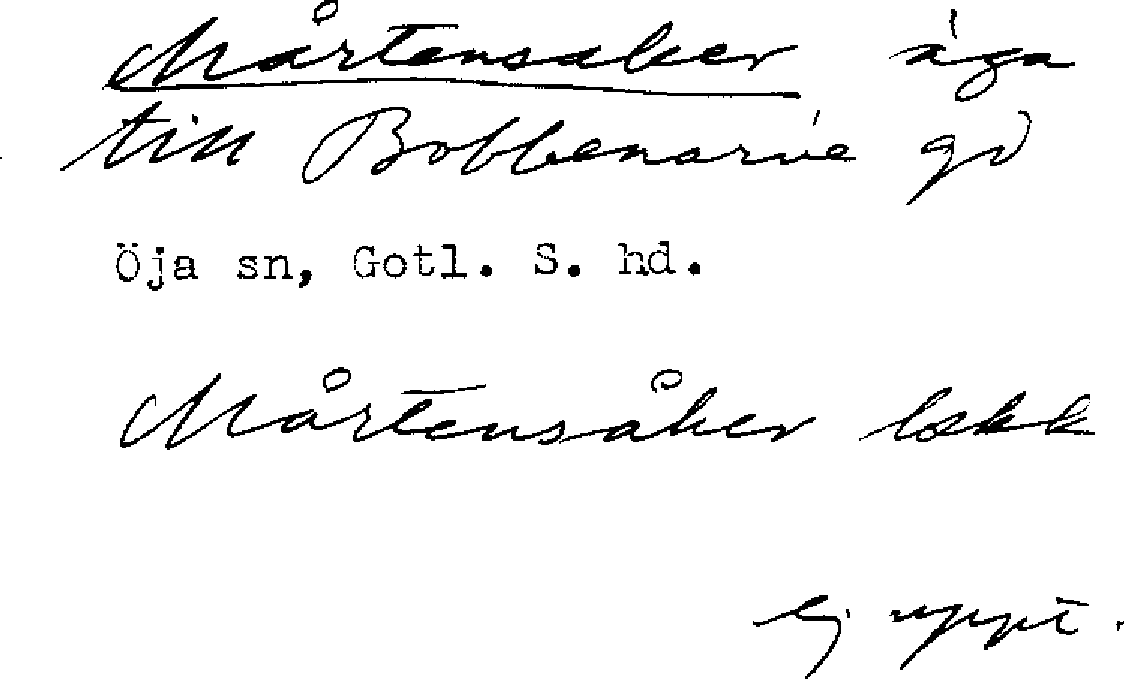 Mårtensaker äga
till Bobbenarve gd
Öja sn, Gotl. S. hd.
Mårtensåker lokk
ej uppt.